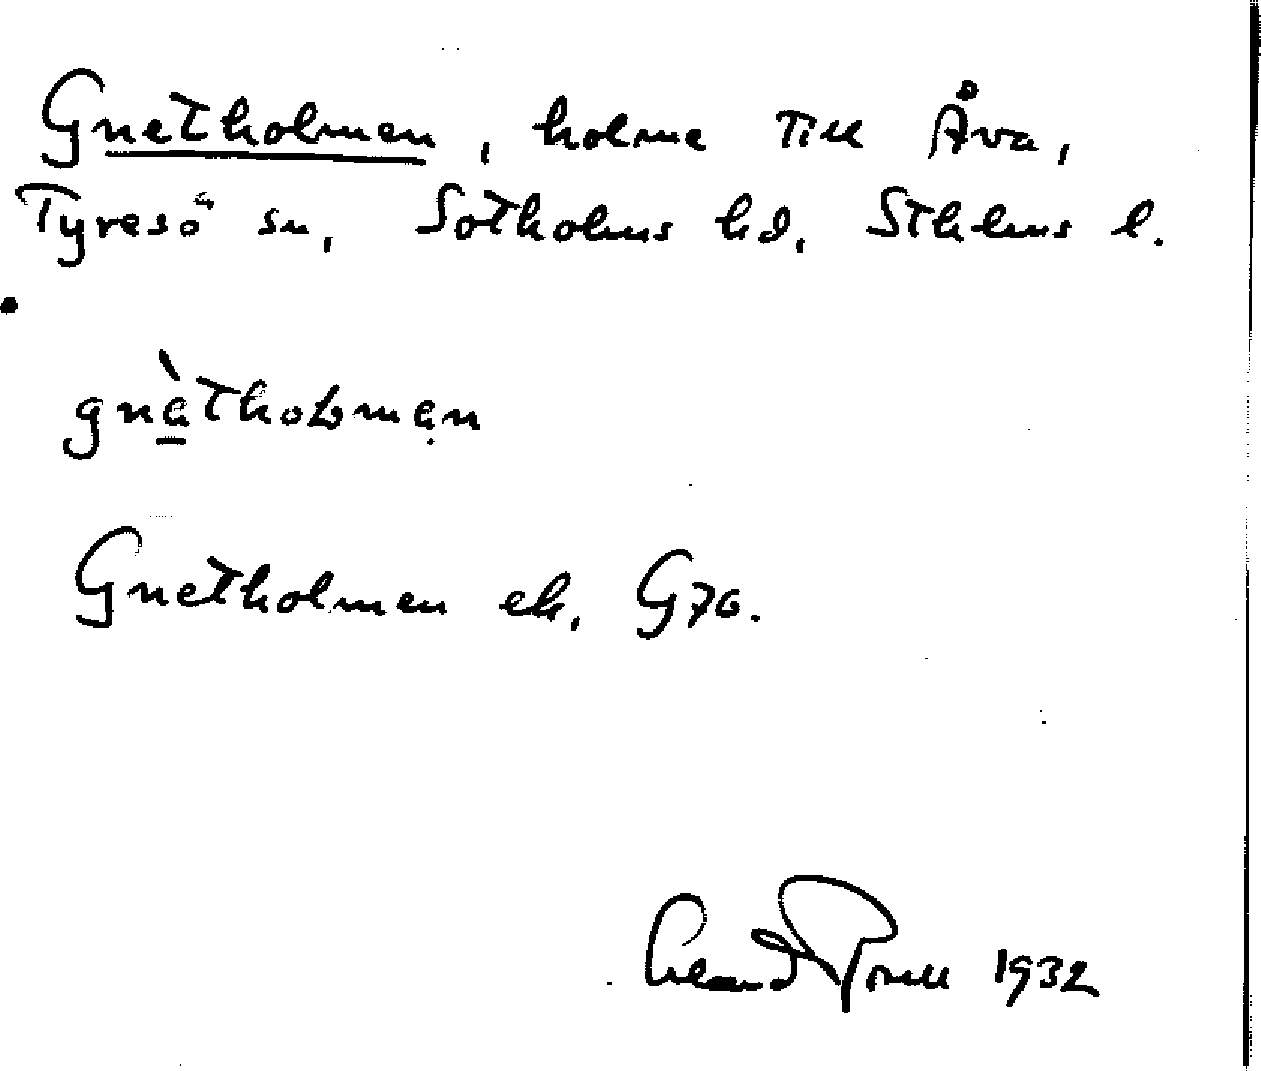 Gnetholmen, holme till Åva,
Tyresö sn, Sotholms hd, Sthlms l.
gnètholmen
Gnetholmen ek. G70.
1932